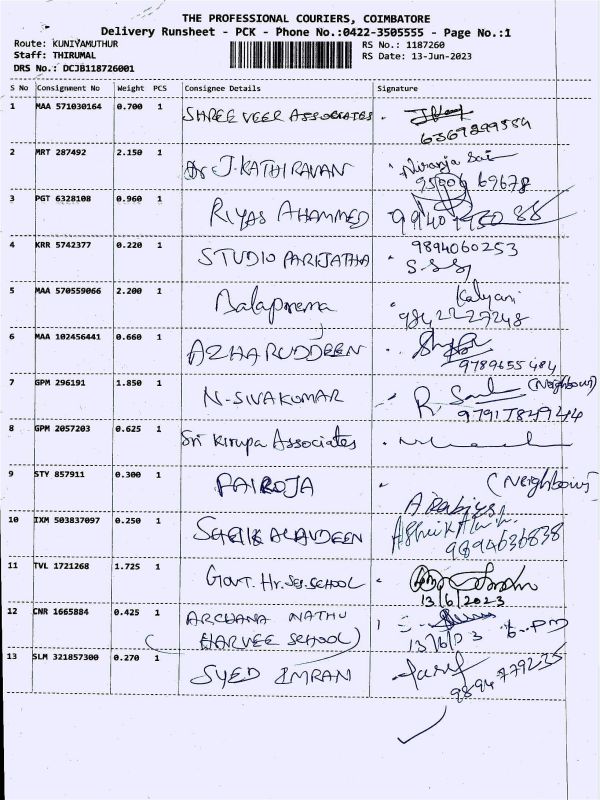 THE PROFESSIONAL COURIERS, COIMBATORE
Delivery Runsheet - PCK - Phone No.:0422-3505555 - Page No.:1
Route: KUNIYAMUTHUR RS No.: 1187260
Staff: THIRUMAL RS Date: 13-Jun-2023
DRS No.: DCJB118726001
S No Consignment No Weight PCS Consignee Details Signature
1 MAA 571030164 0.700 1 SHREE VEER ASSOCIATES
6369899584
2 MRT 287492 2.150 1 Dr J. KATHIRAVAN Niranja Sai
95006 69678
3 PGT 6328108 0.960 1 RIYAS AHAMMED
4 KRR 5742377 0.220 1 STUDIO PARIJATHA 9894060253
5 MAA 570559066 2.200 1 Balaprema Kalyani
9842227248
6 MAA 102456441 0.660 1 AZHARUDDEEN
9789655484
7 GPM 296191 1.850 1 N-SIVAKUMAR R. (Neighbour)
8 GPM 2057203 0.625 1 Sri Kirupa Associates
9 STY 857911 0.300 1 FAIROJA (Neighbour)
10 IXM 503837097 0.250 1 SHEIK ALAVDEEN
9894636838
11 TVL 1721268 1.725 1 GOVT. Hr. Sec. SCHOOL
13/6/2023
12 CNR 1665884 0.425 1 ARCHANA NATHU
(HARVEE SCHOOL) 13/6/23
13 SLM 321857300 0.270 1 SYED IMRAN
9894779235